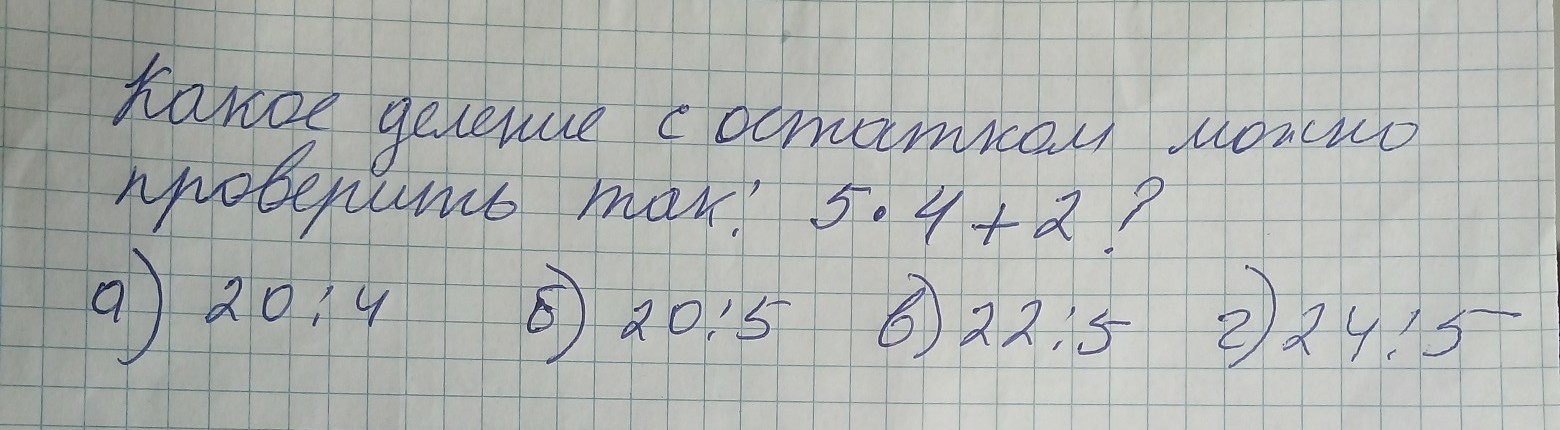 Какое деление с остатком можно
проверить так: 5·4+2?
а) 20:4 б) 20:5 в) 22:5 г) 24:5